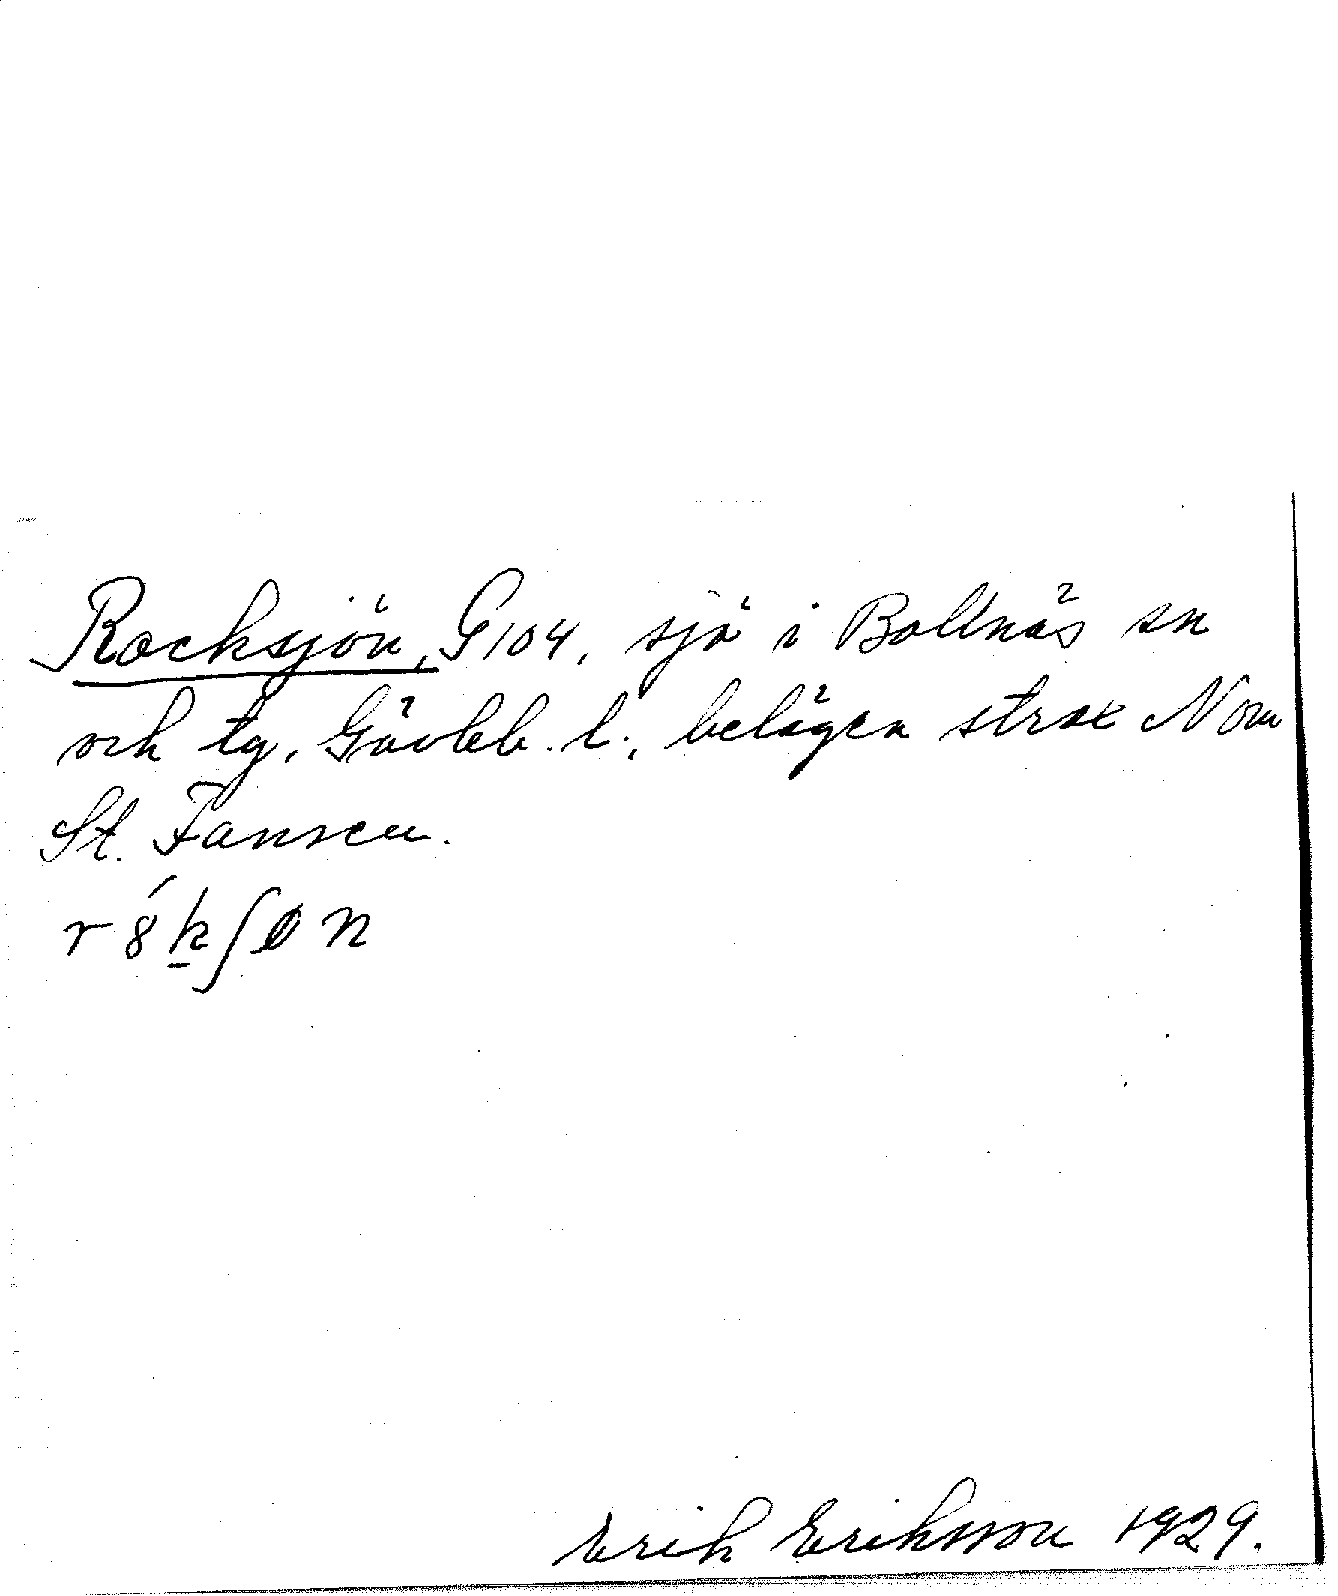 Rocksjön, G104, sjö i Bollnäs sn
och tg, Gävleb. l., belägen strax N om
St. Fansen.
r 8́ k ʃ ø n
Erik Eriksson 1929.